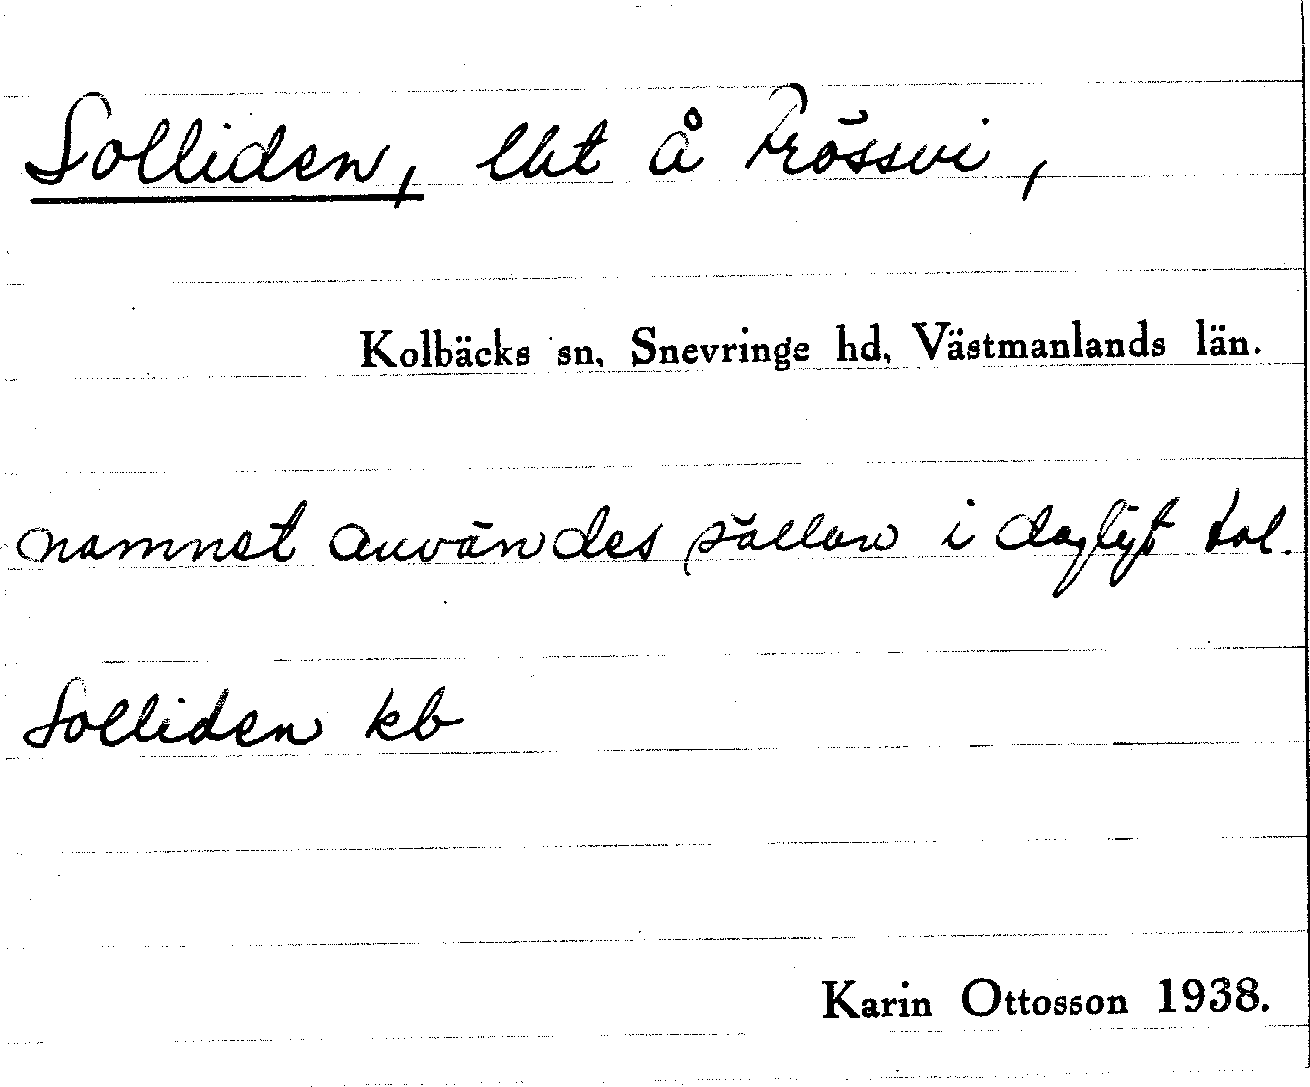 Solliden, lht å Prössvi,
Kolbäcks sn, Snevringe hd, Västmanlands län.
namnet användes sällan i dagligt tal.
Solliden kb
Karin Ottosson 1938.